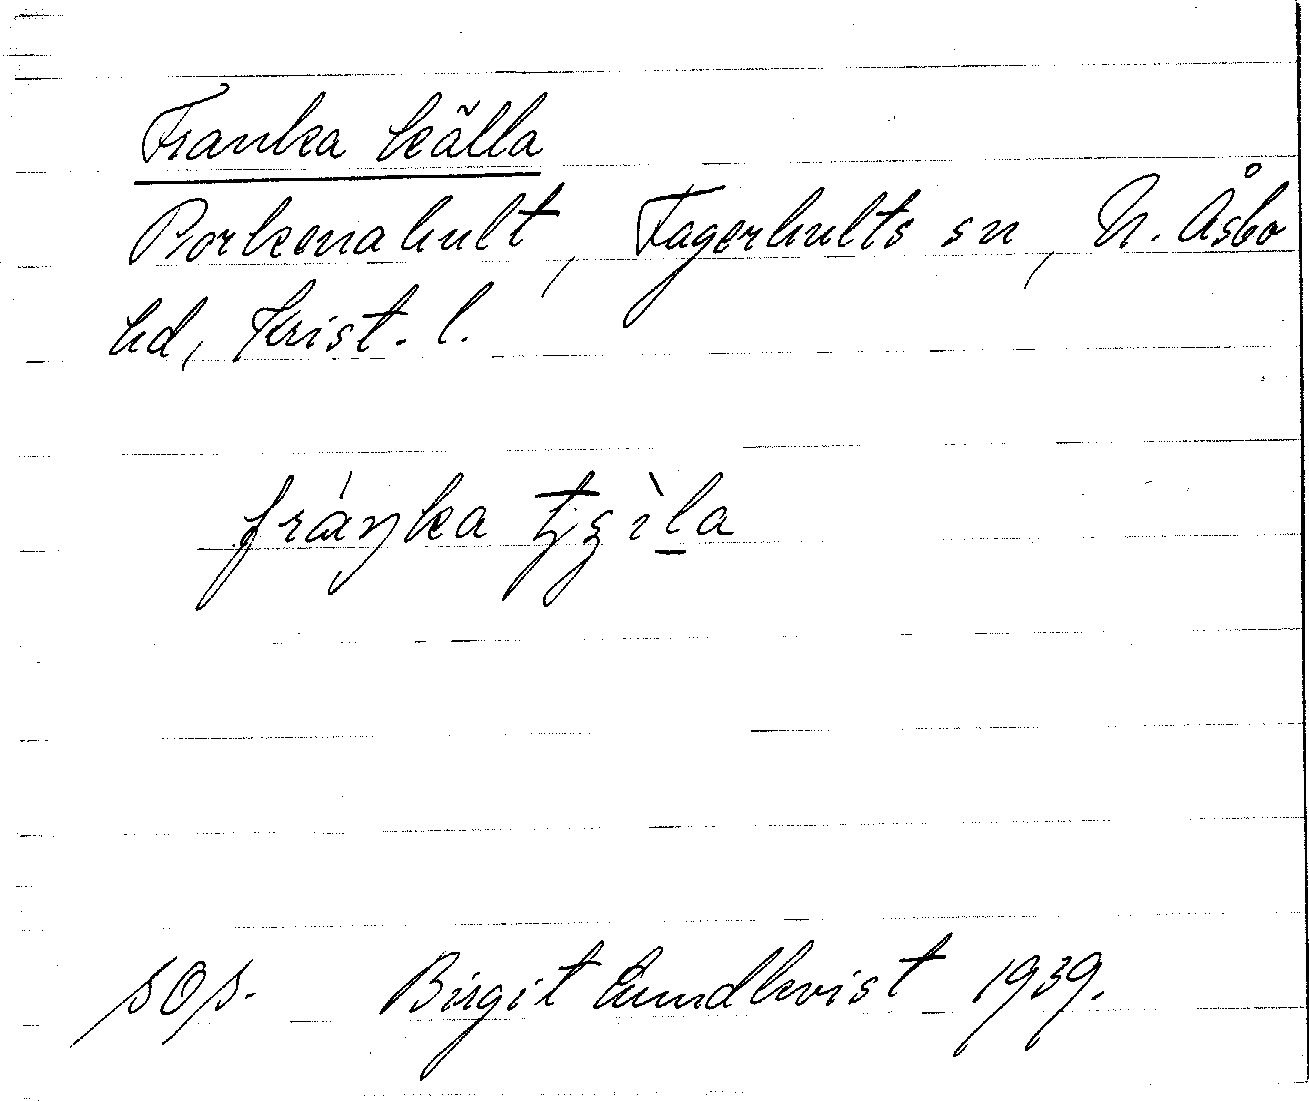 Franka källa
Porkenahult, Fagerhults sn, N. Åsbo
hd, Krist. l.
fráŋka tʂìla
Birgit Lundkvist 1939.